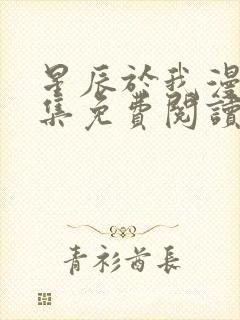 星辰於我漫
集免費閱讀
青衫酋長